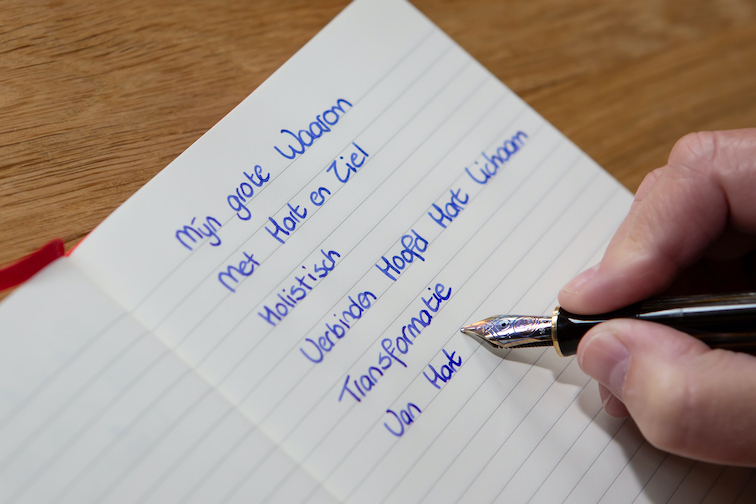 Mijn grote Waarom
Met Hart en Ziel
Holistisch
Verbinden Hoofd Hart Lichaam
Transformatie
Van Hart